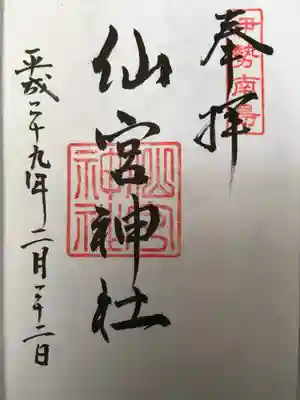 伊勢南島
奉拝
仙宮神社
仙宮
神社
平成二十九年二月二十二日